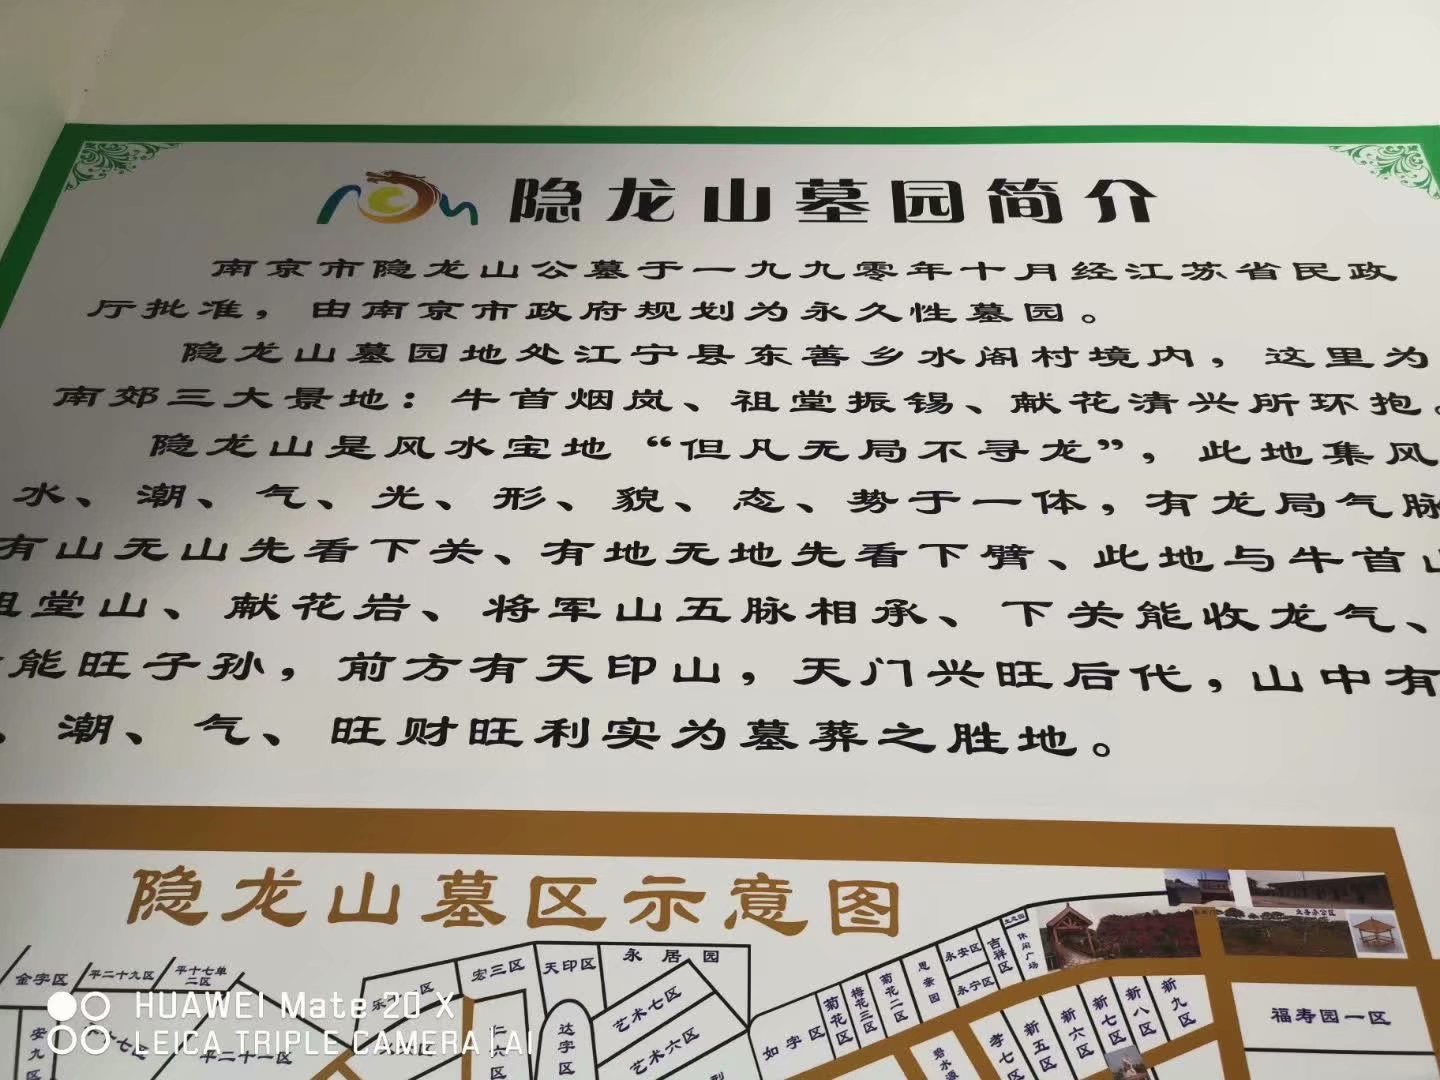 隐龙山墓园简介
南京市隐龙山公墓于一九九零年十月经江苏省民政
厅批准，由南京市政府规划为永久性墓园。
隐龙山墓园地处江宁县东善乡水阁村境内，这里为
南郊三大景地：牛首烟岚、祖堂振锡、献花清兴所环抱。
隐龙山是风水宝地“但凡无局不寻龙”，此地集风
水、潮、气、光、形、貌、态、势于一体，有龙局气脉
有山无山先看下关、有地无地先看下臂、此地与牛首山
祖堂山、献花岩、将军山五脉相承、下关能收龙气、
能旺子孙，前方有天印山，天门兴旺后代，山中有
、潮、气、旺财旺利实为墓葬之胜地。
隐龙山墓区示意图
金字区
平二十九区
平十七单二区
宏三区
天印区
永居园
艺术七区
艺术六区
达字区
平二十一区
如字区
菊花区
梅花三区
菊花二区
思亲园
永安区
永宁区
吉祥区
休闲广场
孝七区
新五区
新六区
新七区
新八区
新九区
福寿园一区
HUAWEI Mate 20 X
LEICA TRIPLE CAMERA | AI